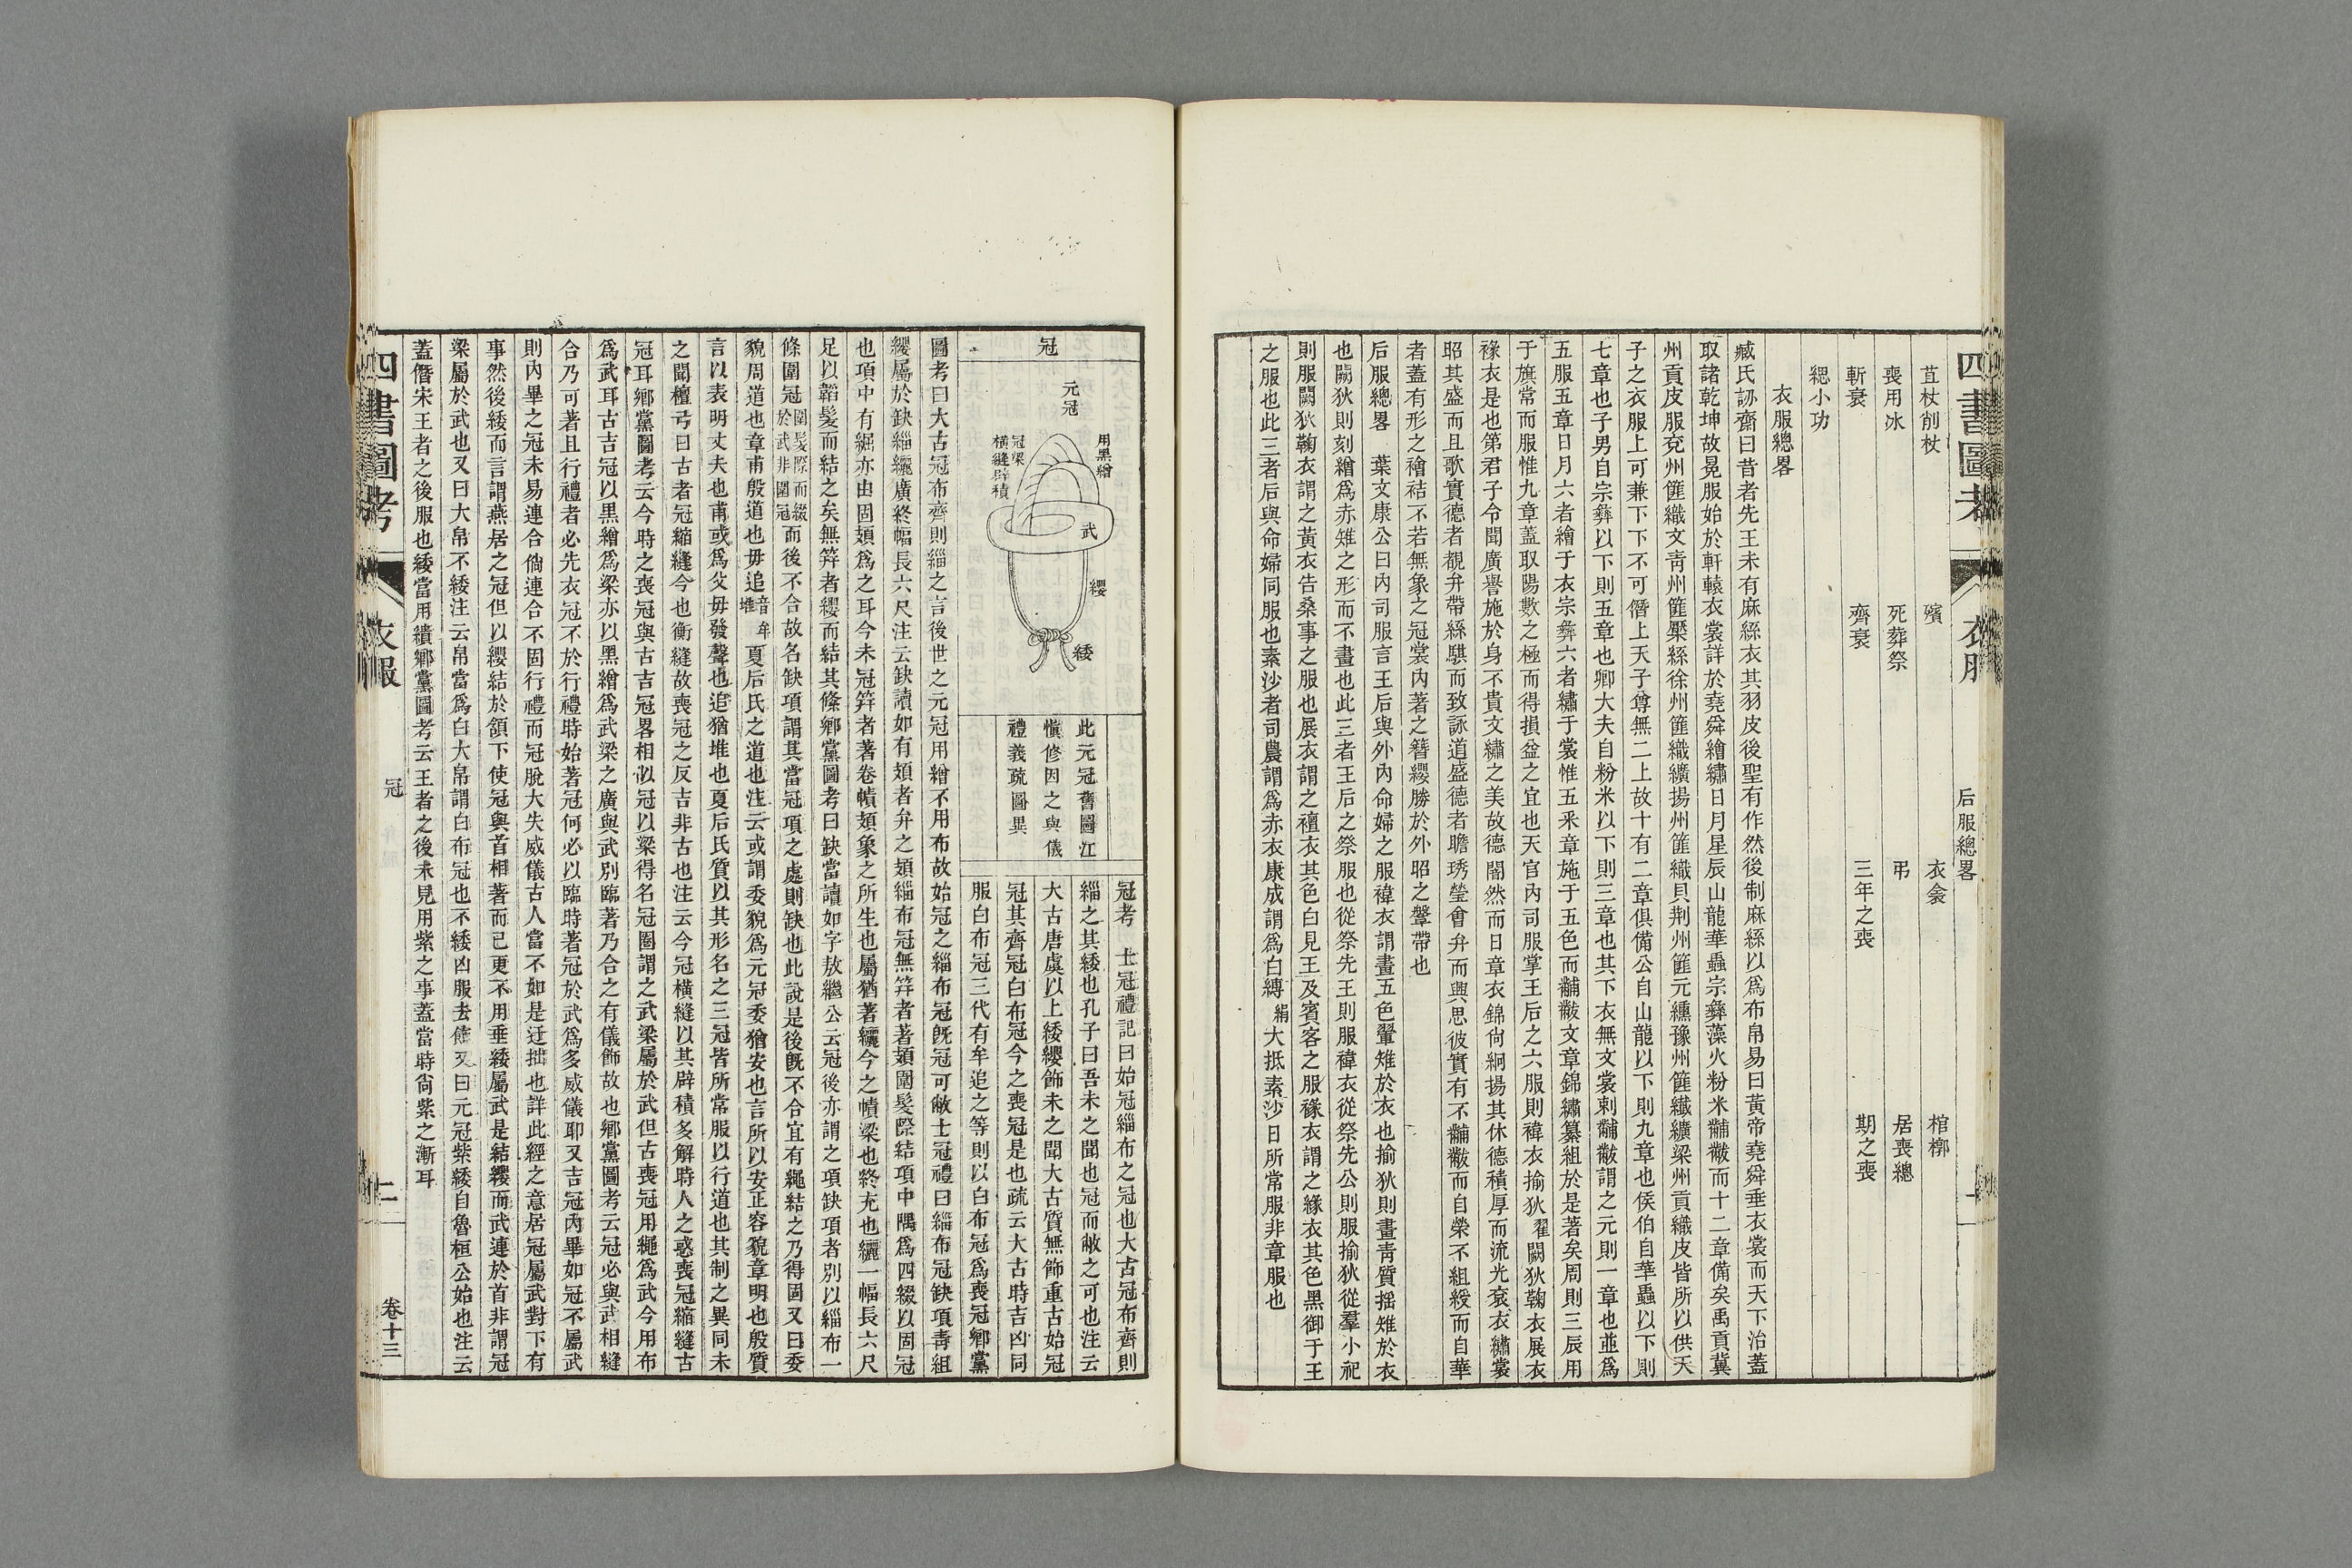 四書圖考
衣服
后服總畧
苴杖削杖　殯　衣衾　棺槨
喪用冰　死葬祭　弔　居喪總
斬衰　齊衰　三年之喪　期之喪
緦小功
衣服總畧
臧氏訪齋曰昔者先王未有麻絲衣其羽皮後聖有作然後制麻絲以爲布帛易曰黃帝堯舜垂衣裳而天下治蓋
取諸乾坤故冕服始於軒轅衣裳詳於堯舜繪繡日月星辰山龍華蟲宗彝藻火粉米黼黻而十二章備矣禹貢冀
州貢皮服兗州篚織文青州篚檿絲徐州篚織纊揚州篚織貝荆州篚元纁豫州篚纖纊梁州貢織皮皆所以供天
子之衣服上可兼下下不可僭上天子尊無二上故十有二章俱備公自山龍以下則九章也侯伯自華蟲以下則
七章也子男自宗彝以下則五章也卿大夫自粉米以下則三章也其下衣無文裳刺黼黻謂之元則一章也並爲
五服五章日月六者繪于衣宗彝六者繡于裳惟五釆章施于五色而黼黻文章錦繡纂組於是著矣周則三辰用
于旗常而服惟九章蓋取陽數之極而得損益之宜也天官內司服掌王后之六服則褘衣揄狄翟闕狄鞠衣展衣
褖衣是也第君子令聞廣譽施於身不貴文繡之美故德闇然而日章衣錦尙絅揚其休德積厚而流光袞衣繡裳
昭其盛而且歌實德者覩弁帶絲騏而致詠道盛德者瞻琇瑩會弁而興思彼實有不黼黻而自榮不組綬而自華
者蓋有形之襘袺不若無象之冠裳內著之簪纓勝於外昭之鞶帶也
后服總畧　葉文康公曰內司服言王后與外內命婦之服褘衣謂畫五色翬雉於衣也揄狄則畫青質揺雉於衣
也闕狄則刻繒爲赤雉之形而不畫也此三者王后之祭服也從祭先王則服褘衣從祭先公則服揄狄從羣小祀
則服闕狄鞠衣謂之黃衣告桑事之服也展衣謂之襢衣其色白見王及賓客之服褖衣謂之緣衣其色黑御于王
之服也此三者后與命婦同服也素沙者司農謂爲赤衣康成謂爲白縳絹大抵素沙日所常服非章服也
冠
元冠
用黑繒
冠梁
橫縫辟積
武
纓
緌
此元冠舊圖江
愼修因之與儀
禮義疏圖異
冠考　士冠禮記曰始冠緇布之冠也大古冠布齊則
緇之其緌也孔子曰吾未之聞也冠而敝之可也注云
大古唐虞以上緌纓飾未之聞大古質無飾重古始冠
冠其齊冠白布冠今之喪冠是也疏云大古時吉凶同
服白布冠三代有牟追之等則以白布冠爲喪冠鄉黨
圖考曰大古冠布齊則緇之言後世之元冠用繒不用布故始冠之緇布冠旣冠可敝士冠禮曰緇布冠缺項靑組
纓屬於缺緇纚廣終幅長六尺注云缺讀如有頍者弁之頍緇布冠無笄者著頍圍髮際結項中隅爲四綴以固冠
也項中有𦀗亦由固頍爲之耳今未冠笄者著卷幘頍象之所生也屬猶著纚今之幘梁也終充也纚一幅長六尺
足以韜髮而結之矣無笄者纓而結其絛鄉黨圖考曰缺當讀如字敖繼公云冠後亦謂之項缺項者別以緇布一
條圍冠圍髮際而綴於武非圍冠而後不合故名缺項謂其當冠項之處則缺也此說是後旣不合宜有繩結之乃得固又曰委
貌周道也章甫殷道也毋追音堆牟夏后氏之道也注云或謂委貌爲元冠委猶安也言所以安正容貌章明也殷質
言以表明丈夫也甫或爲父毋發聲也追猶堆也夏后氏質以其形名之三冠皆所常服以行道也其制之異同未
之聞檀弓曰古者冠縮縫今也衡縫故喪冠之反吉非古也注云今冠橫縫以其辟積多解時人之惑喪冠縮縫古
冠耳鄉黨圖考云今時之喪冠與古吉冠畧相似冠以梁得名冠圈謂之武梁屬於武但古喪冠用繩爲武今用布
爲武耳古吉冠以黑繒爲梁亦以黑繒爲武梁之廣與武別臨著乃合之有儀飾故也鄉黨圖考云冠必與武相縫
合乃可著且行禮者必先衣冠不於行禮時始著冠何必以臨時著冠於武爲多威儀耶又吉冠內畢如冠不屬武
則內畢之冠未易連合倘連合不固行禮而冠脫大失威儀古人當不如是迂拙也詳此經之意居冠屬武對下有
事然後緌而言謂燕居之冠但以纓結於頷下使冠與首相著而已更不用垂緌屬武是結纓而武連於首非謂冠
梁屬於武也又曰大帛不緌注云帛當爲白大帛謂白布冠也不緌凶服去飾又曰元冠紫緌自魯桓公始也注云
蓋僭宋王者之後服也緌當用繢鄉黨圖考云王者之後未見用紫之事蓋當時尙紫之漸耳
四書圖考
衣服
冠
二
卷十三